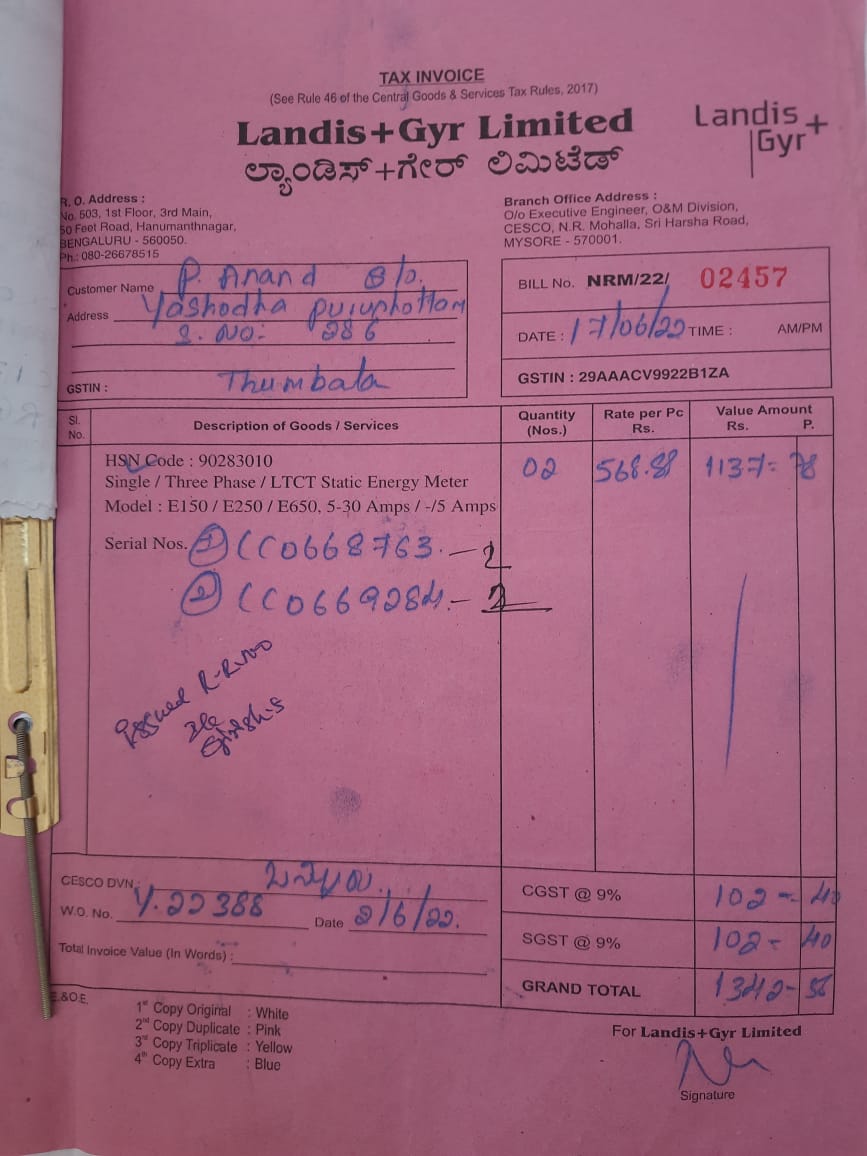 TAX INVOICE
(See Rule 46 of the Central Goods & Services Tax Rules, 2017)
Landis+Gyr Limited
ಲ್ಯಾಂಡಿಸ್+ಗೇರ್ ಲಿಮಿಟೆಡ್
Landis+
Gyr
R. O. Address :
No. 503, 1st Floor, 3rd Main,
50 Feet Road, Hanumanthnagar,
BENGALURU - 560050.
Ph.: 080-26678515
Branch Office Address :
O/o Executive Engineer, O&M Division,
CESCO, N.R. Mohalla, Sri Harsha Road,
MYSORE - 570001.
Customer Name P. Anand S/o.
Address Yashodha
S. No: 286
GSTIN : Thumbala
BILL No. NRM/22/ 02457
DATE : 17/06/22 TIME : AM/PM
GSTIN : 29AAACV9922B1ZA
Sl. No. Description of Goods / Services Quantity (Nos.) Rate per Pc Rs. Value Amount Rs. P.
HSN Code : 90283010 02 568.89 1137- 78
Single / Three Phase / LTCT Static Energy Meter
Model : E150 / E250 / E650, 5-30 Amps / -/5 Amps
Serial Nos. ① CC0668763.-2
② CC0669284.-2
Issued R-R.No
CESCO DVN :
W.O. No. Y.22388 Date 2/6/22.
Total Invoice Value (In Words) :
CGST @ 9% 102-40
SGST @ 9% 102-40
GRAND TOTAL 1342-58
E.&O.E.
1st Copy Original : White
2nd Copy Duplicate : Pink
3rd Copy Triplicate : Yellow
4th Copy Extra : Blue
For Landis+Gyr Limited
Signature